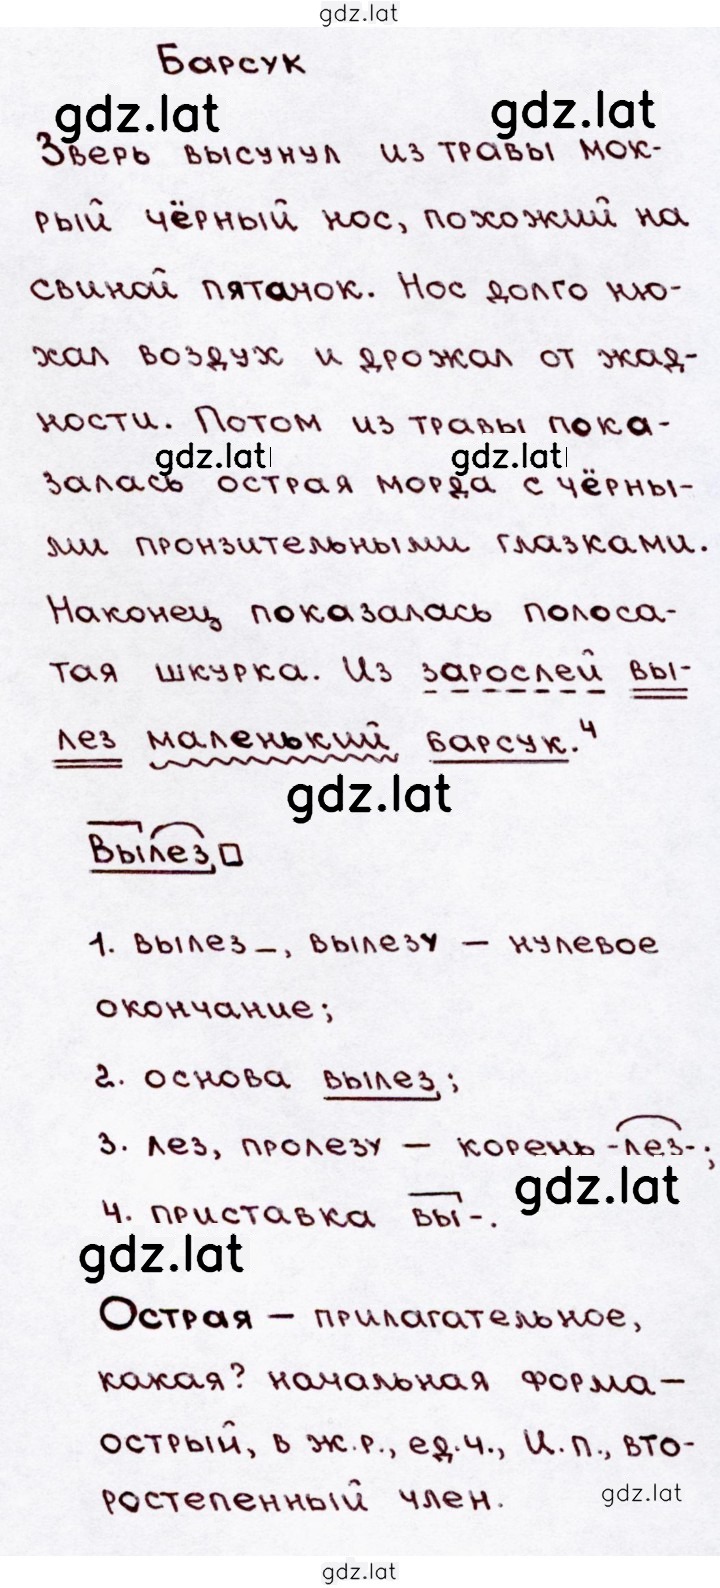 gdz.lat
Барсук
gdz.lat gdz.lat
Зверь высунул из травы мок-
рый чёрный нос, похожий на
свиной пятачок. Нос долго ню-
хал воздух и дрожал от жад-
ности. Потом из травы пока-
gdz.lat gdz.lat
залась острая морда с чёрны-
ми пронзительными глазками.
Наконец показалась полоса-
тая шкурка. Из зарослей вы-
лез маленький барсук.⁴
gdz.lat
Вылез
1. вылез_, вылезу — нулевое
окончание;
2. основа вылез;
3. лез, пролезу — корень -лез-;
gdz.lat
4. приставка вы-.
gdz.lat
Острая — прилагательное,
какая? начальная форма —
острый, в ж.р., ед.ч., И.п., вто-
ростепенный член.
gdz.lat
gdz.lat